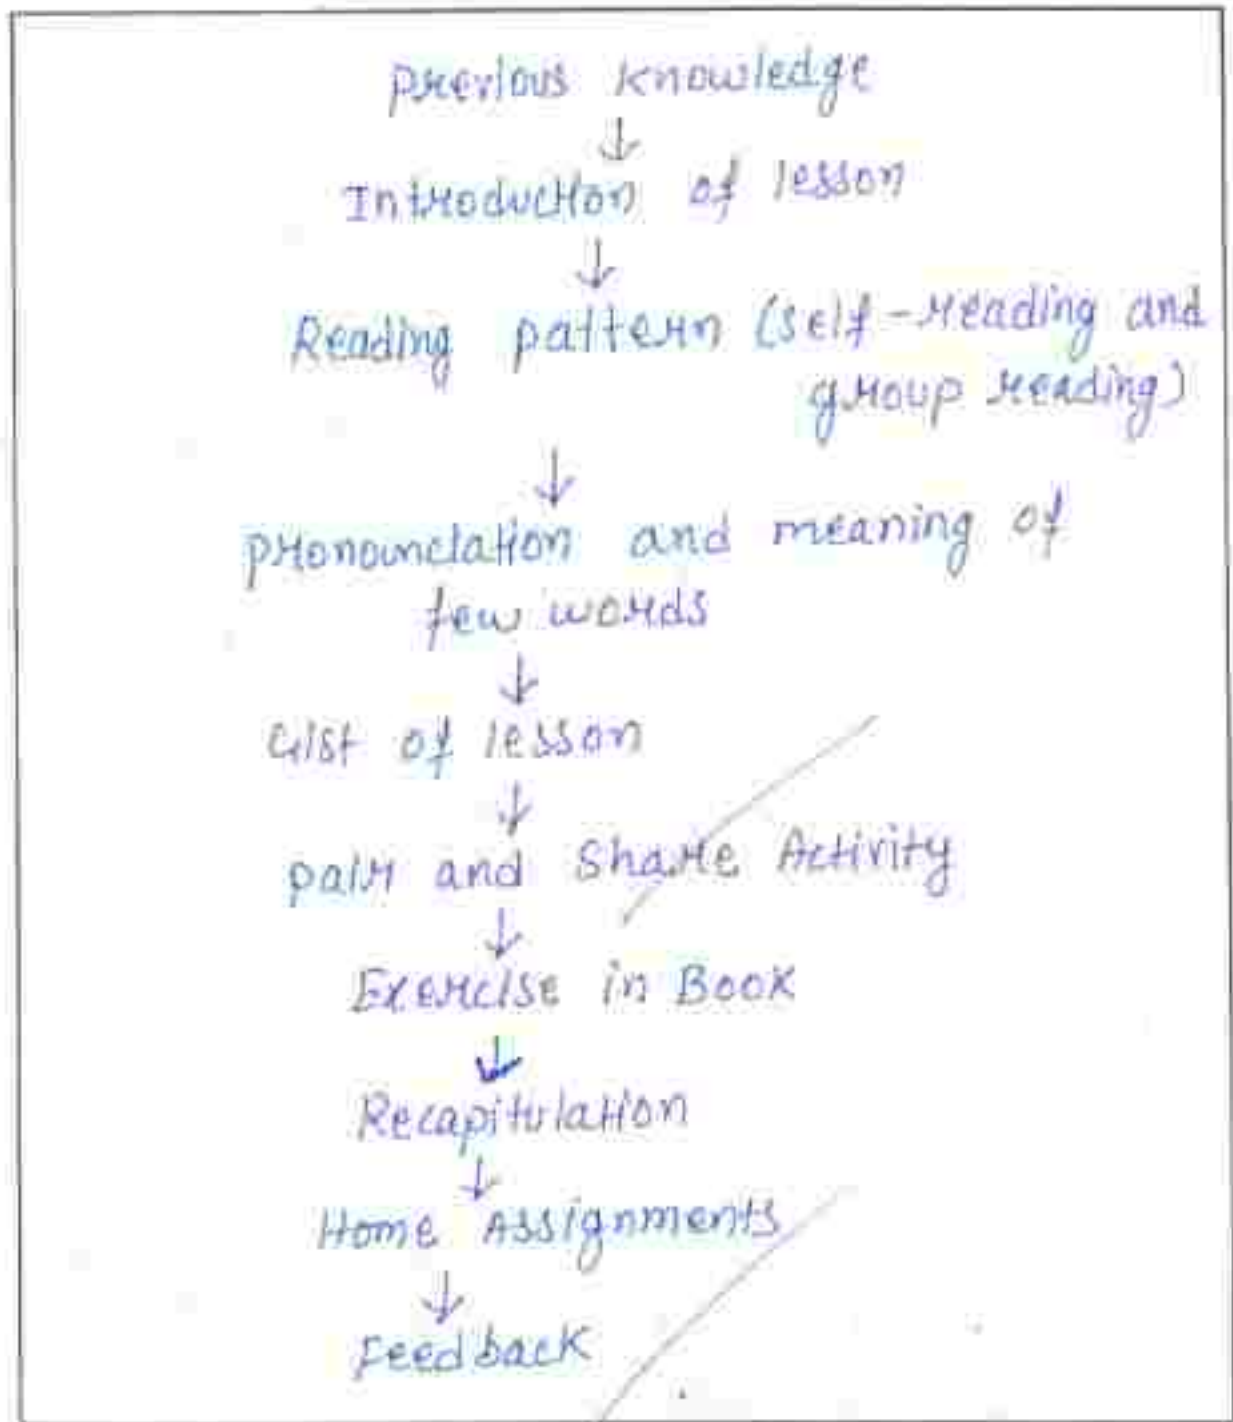 previous knowledge
↓
Introduction of lesson
↓
Reading pattern (self-reading and
group reading)
↓
pronounciation and meaning of
few words
↓
Gist of lesson
↓
pair and Share Activity
↓
Exercise in Book
↓
Recapitulation
↓
Home Assignments
↓
Feedback